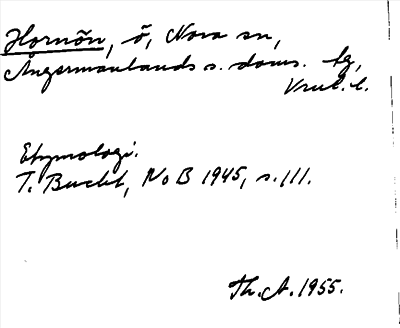 Hornön, ö, Nora sn,
Ångermanlands s. doms. tg,
Vnrl. l.
Etymologi.
T. Bucht, NoB 1945, s. 111.
Th. A. 1955.